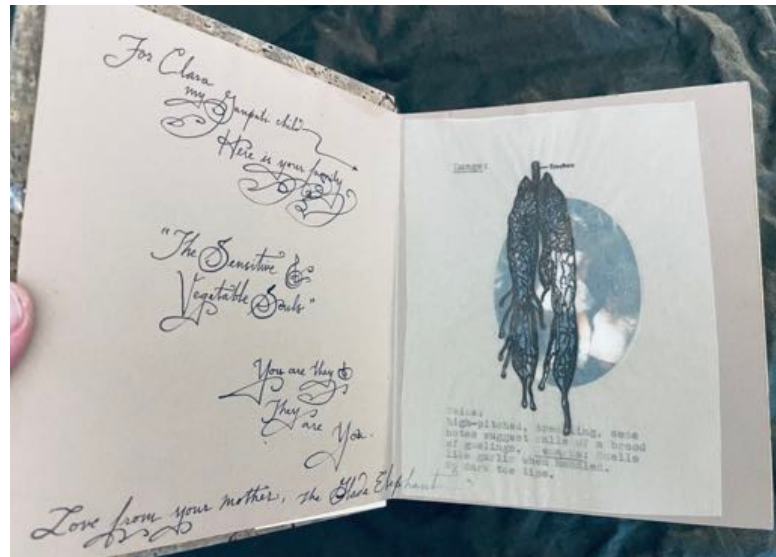 For Clara
my Ganpati child
Here is your family
"The Sensitive &
Vegetable Souls"
You are they &
They
are
You.
Love from your mother, the Elephant
Lungs:
Trachea
Voice:
high-pitched, trembling, some
notes suggest calls of a brood
of goslings. Smells
like garlic when handled.
dark toe tips.